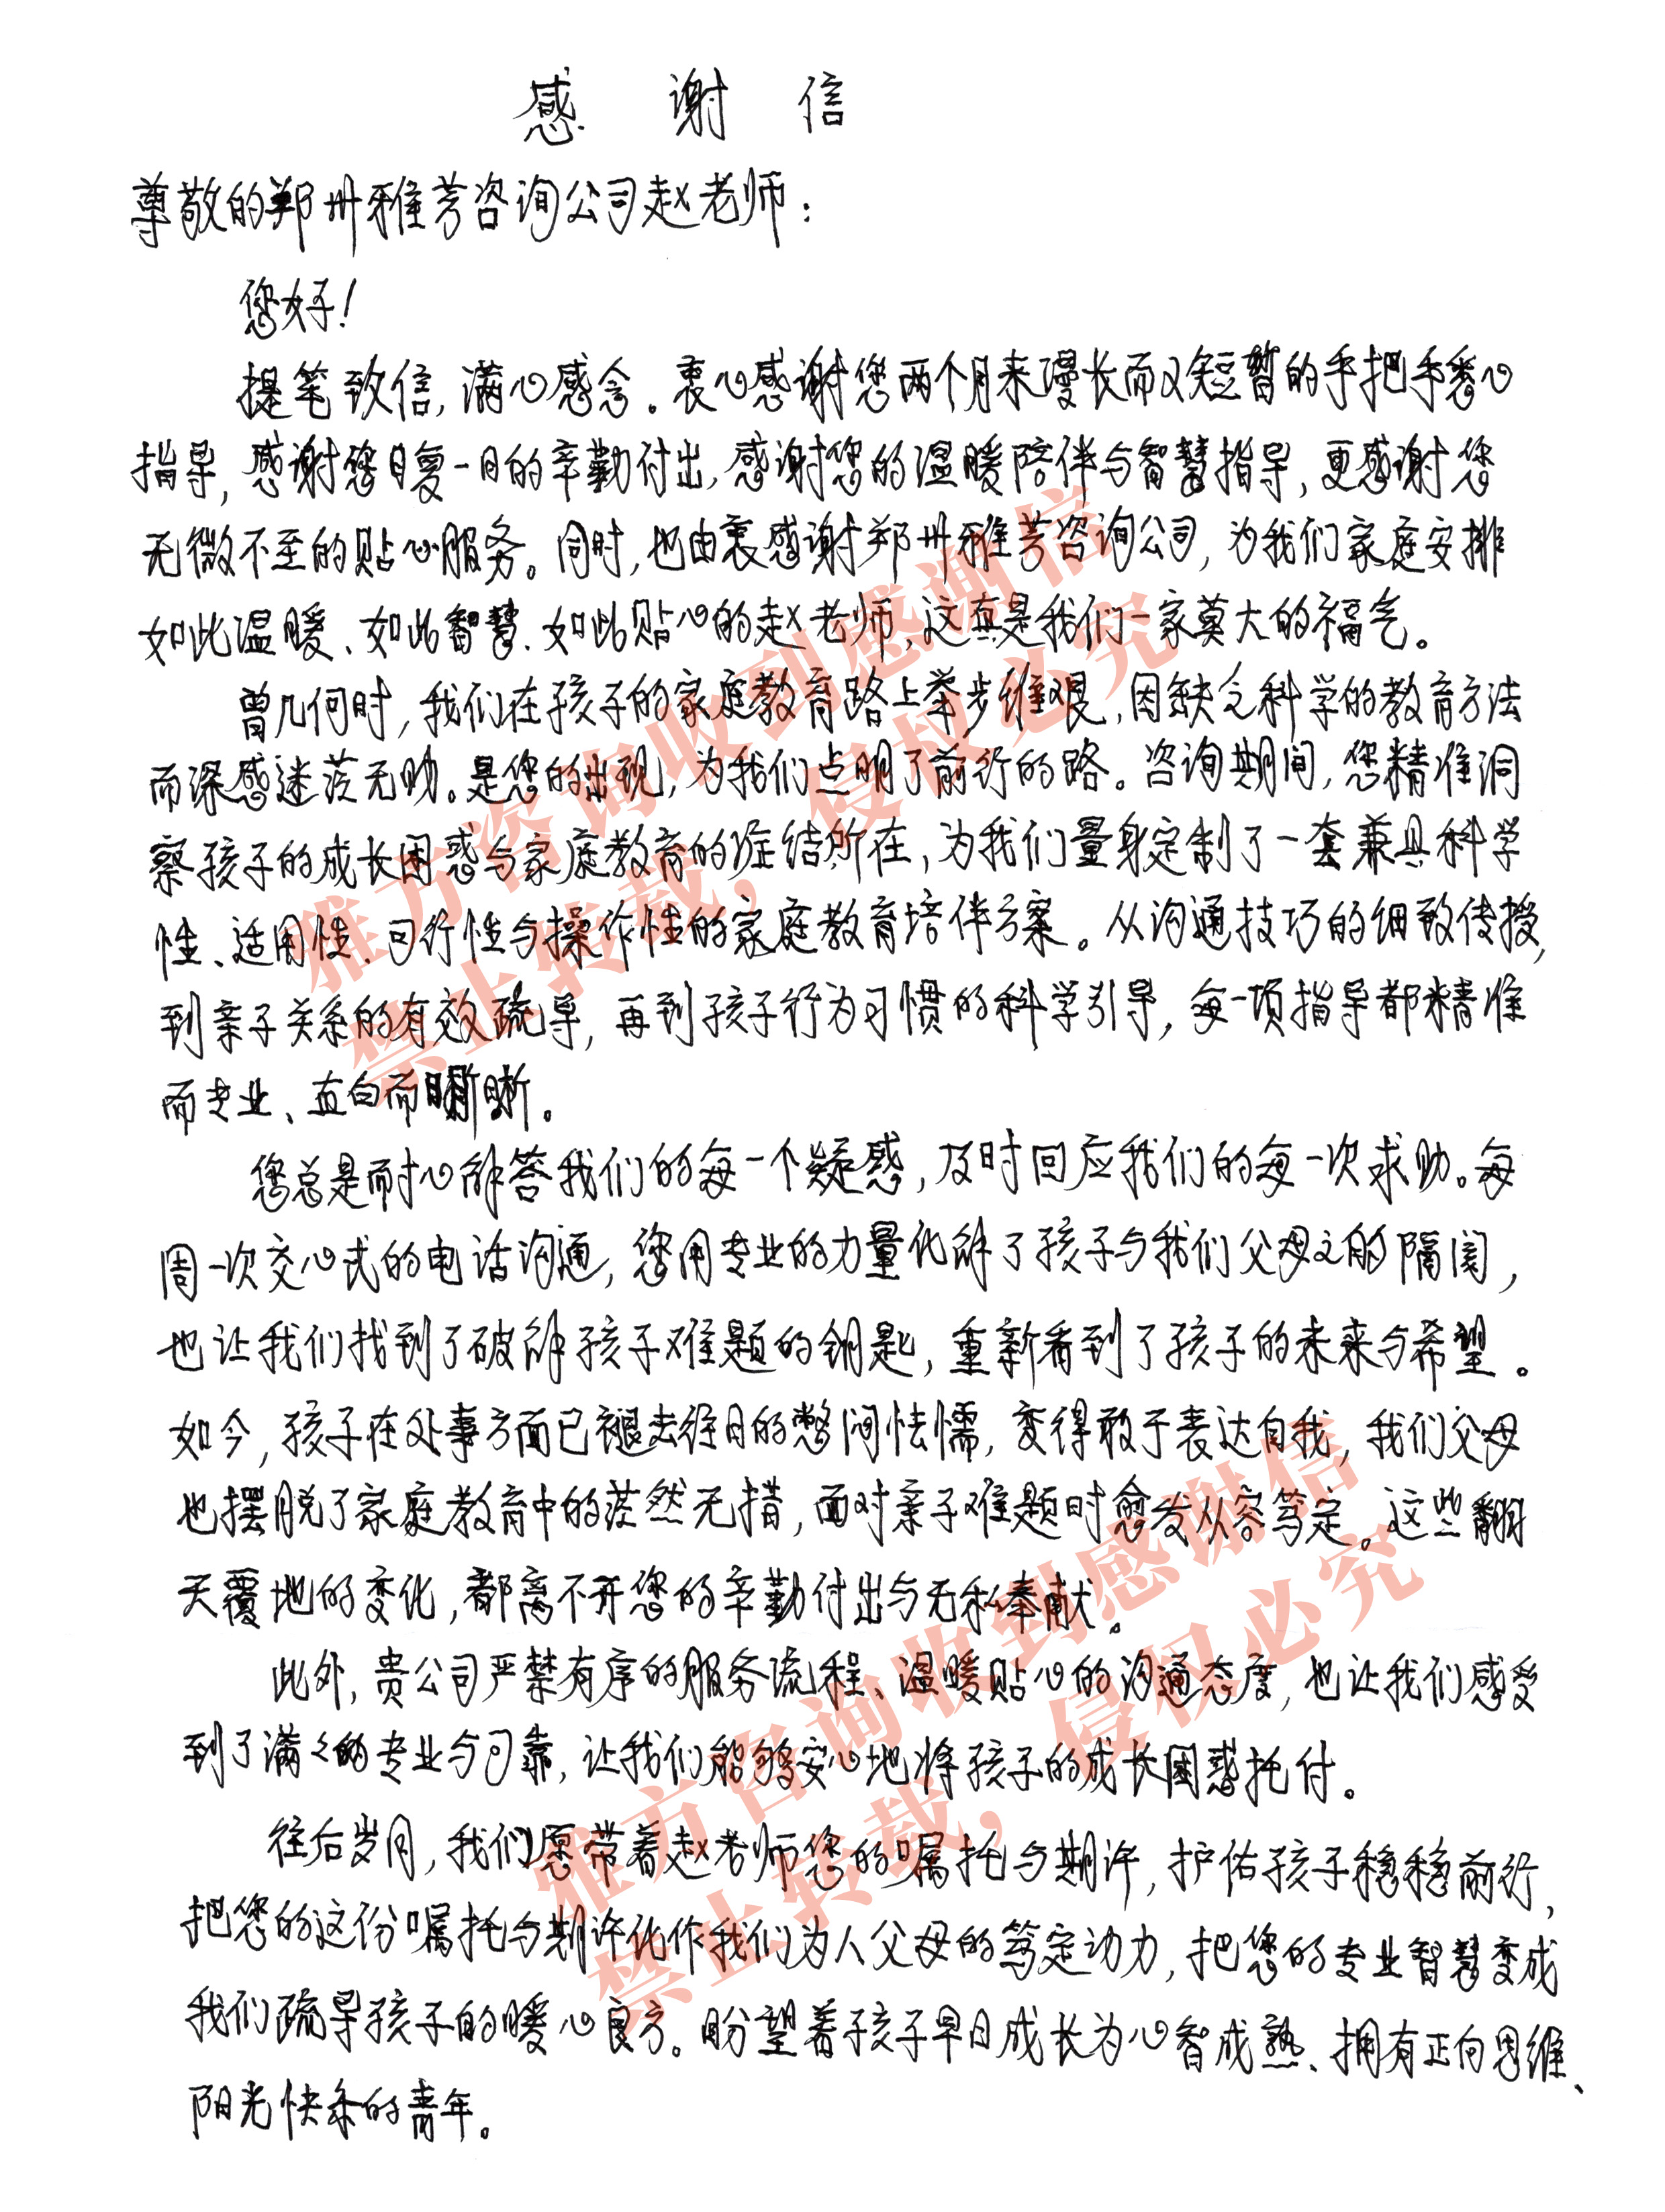 感谢信
尊敬的郑州雅芳咨询公司赵老师：
您好！
提笔致信，满心感念。衷心感谢您两个月来漫长而又短暂的手把手悉心
指导，感谢您日复一日的辛勤付出，感谢您的温暖陪伴与智慧指导，更感谢您
无微不至的贴心服务。同时，也由衷感谢郑州雅芳咨询公司，为我们家庭安排
如此温暖、如此智慧、如此贴心的赵老师，这真是我们一家莫大的福气。
曾几何时，我们在孩子的家庭教育路上举步维艰，因缺乏科学的教育方法
而深感迷茫无助。是您的出现，为我们点明了前行的路。咨询期间，您精准洞
察孩子的成长困惑与家庭教育的症结所在，为我们量身定制了一套兼具科学
性、适用性、可行性与操作性的家庭教育培伴方案。从沟通技巧的细致传授，
到亲子关系的有效疏导，再到孩子行为习惯的科学引导，每一项指导都精准
而专业、直白而晰。
您总是耐心解答我们的每一个疑惑，及时回应我们的每一次求助。每
周一次交心式的电话沟通，您用专业的力量化解了孩子与我们父母之的隔阂，
也让我们找到了破解孩子难题的钥匙，重新看到了孩子的未来与希望。
如今，孩子在处事方面已褪去往日的憋闷怯懦，变得敢于表达自我，我们父母
也摆脱了家庭教育中的茫然无措，面对亲子难题时愈发从容笃定。这些翻
天覆地的变化，都离不开您的辛勤付出与无私奉献。
此外，贵公司严禁有序的服务流程、温暖贴心的沟通态度，也让我们感受
到了满々的专业与可靠，让我们能够安心地将孩子的成长困惑托付。
往后岁月，我们愿带着赵老师您的嘱托与期许，护佑孩子稳稳前行，
把您的这份嘱托与期许化作我们为人父母的笃定动力，把您的专业智慧变成
我们疏导孩子的暖心良方。盼望着孩子早日成长为心智成熟、拥有正向思维、
阳光快乐的青年。
雅方咨询收到感谢信
禁止转载，侵权必究
雅方咨询收到感谢信
禁止转载，侵权必究